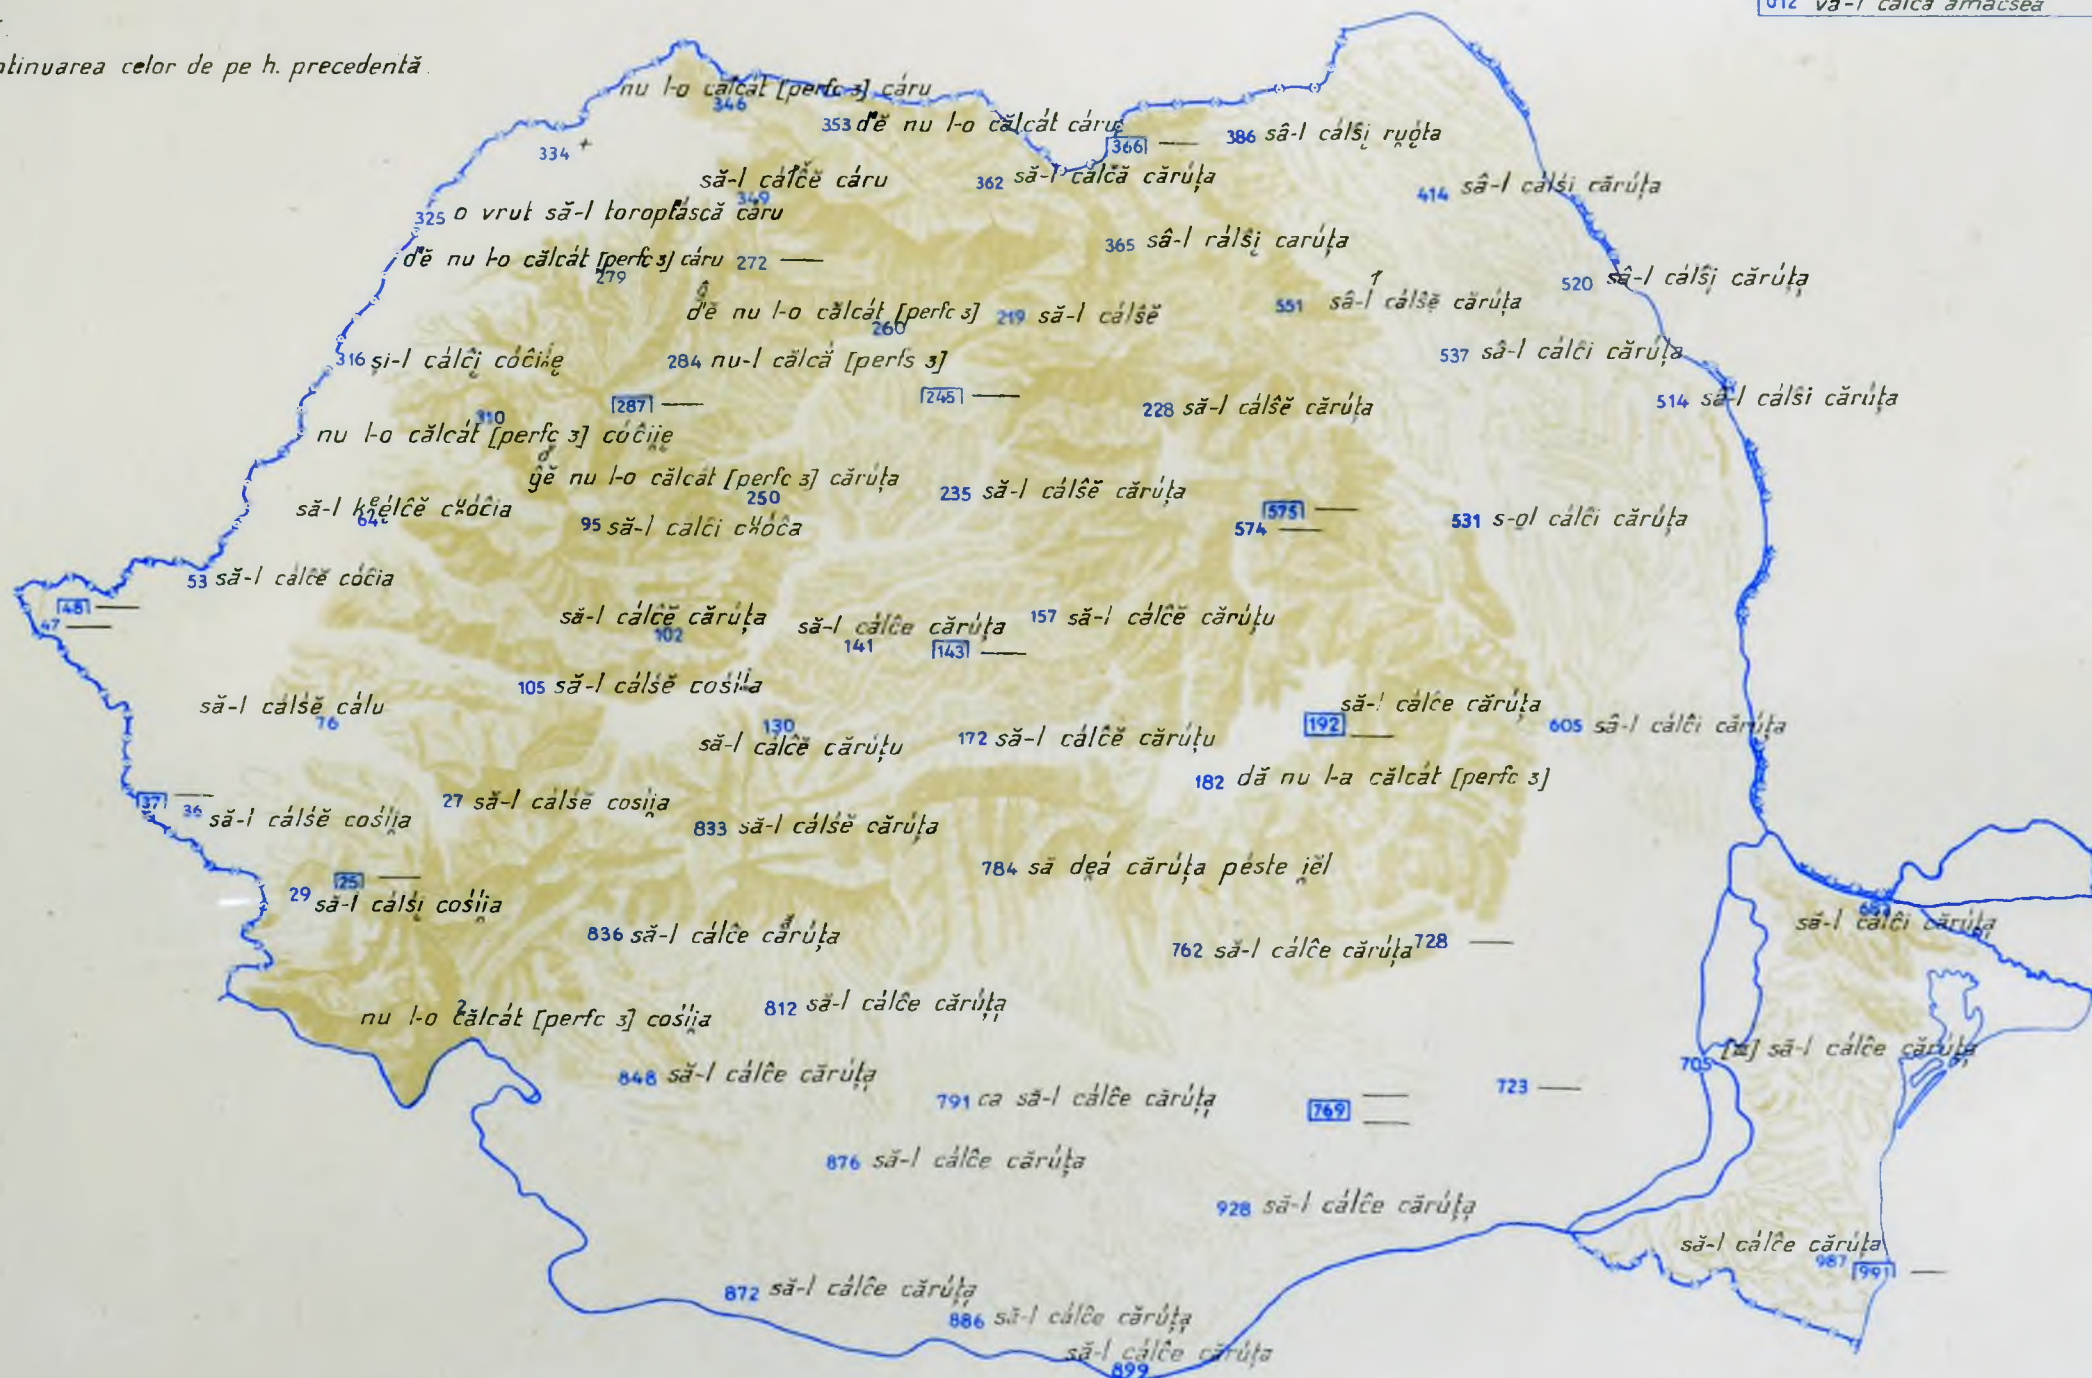 012 va-l calca amacsea
continuarea celor de pe h. precedentă.
nu l-o călcát [perfc 3] cáru
346
353 d'ĕ nu l-o călcát cáru
366 —
386 sâ-l cálŝi̯ ru̯o̯ta
334 +
să-l cálĉĕ cáru
349
362 să-l cálcă cărúța
414 sâ-l cálŝi cărúța
325 o vrut să-l toroptáscă cáru
365 sâ-l rálŝi̯ carúța
d'ĕ nu l-o călcát [perfc 3] cáru
279
272 —
520 sâ-l cálŝi̯ cărúța
d'ĕ nu l-o călcát [perfc 3]
260
219 să-l cálŝĕ
551 sâ-l cálŝĕ cărúța
1
316 și-l cálĉi̯
284 nu-l călcă [perfs 3]
537 sâ-l cálĉi cărúța
287 —
245 —
228 să-l cálŝĕ cărúța
514 sâ-l cálŝi cărúța
310
nu l-o călcát [perfc 3] cóĉii̯e
ĝĕ nu l-o călcát [perfc 3] cărúța
250
235 să-l cálŝĕ cărúța
să-l
64
95 să-l calĉi
575 —
574 —
531 s-ol cálĉi cărúța
53 să-l cálĉĕ cóĉia
48 —
47 —
să-l cálĉĕ cărúța
102
să-l cálĉe cărúța
141
143 —
157 să-l cálĉĕ cărúțu
105 să-l cálśĕ cośíi̯a
să-l cálśĕ cálu
76
130
să-l cálĉĕ cărúțu
172 să-l cálĉĕ cărúțu
să-l cálĉe cărúța
192 —
605 sâ-l cálĉi cărúța
182 dă nu l-a călcát [perfc 3]
37 —
36 să-l cálśĕ cośíi̯a
27 să-l cálśĕ cosíi̯a
833 să-l cálśĕ cărúța
784 să de̯á cărúța péste i̯ĕl
25 —
29 să-l cálśi̯ cośíi̯a
836 să-l cálĉe cărúța
762 să-l cálĉe cărúța
728 —
să-l cálĉi cărúța
nu l-o călcát [perfc 3] cośíi̯a
2
812 să-l cálĉe cărúța
705 să-l cálĉe cărúța
848 să-l cálĉe cărúța
791 ca să-l cálĉe cărúța
769 —
723 —
876 să-l cálĉe cărúța
928 să-l cálĉe cărúța
să-l cálĉe cărúța
987
991 —
872 să-l cálĉe cărúța
886 să-l cálĉe cărúța
să-l cálĉe cărúța
899